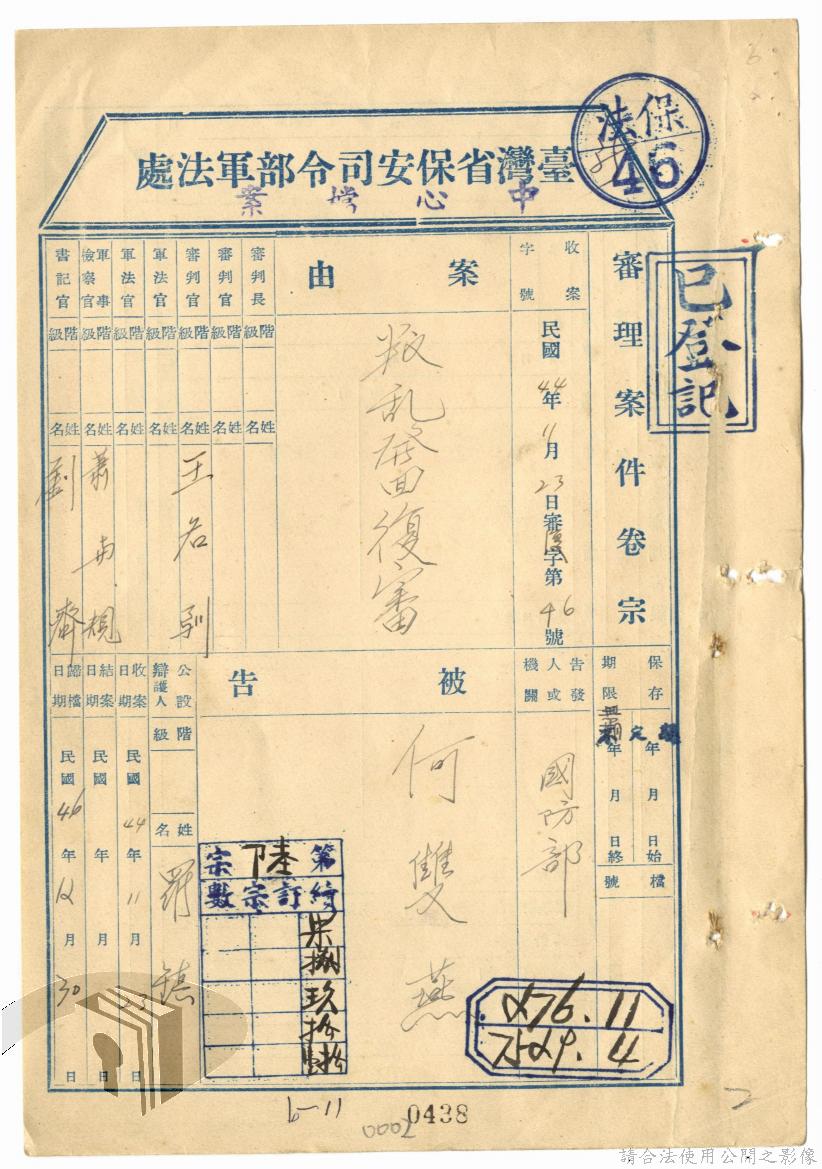 保法
46
臺灣省保安司令部軍法處
中心檔案
已登記
審理案件卷宗
收案字號
民國44年11月23日審字第46號
案由
叛乱發回復審
審判長
階級
審判官
階級
姓名
審判官
階級
姓名
王名馴
軍法官
階級
姓名
軍法官
階級
姓名
軍事檢察官
階級
姓名
蕭與規
書記官
階級
姓名
劉齊
保存期限
年月日始
年月日終
無定
檔號
告發人或機關
國防部
被告
何雙燕
公設辯護人
階級
姓名
羅鎮
收案日期
民國44年11月23日
結案日期
民國年月日
歸檔日期
民國46年12月30日
第陸下宗
續訂宗數
柒
捌
玖
拾
276.11
7529.4
6-11
7000
0438
請合法使用公開之影像